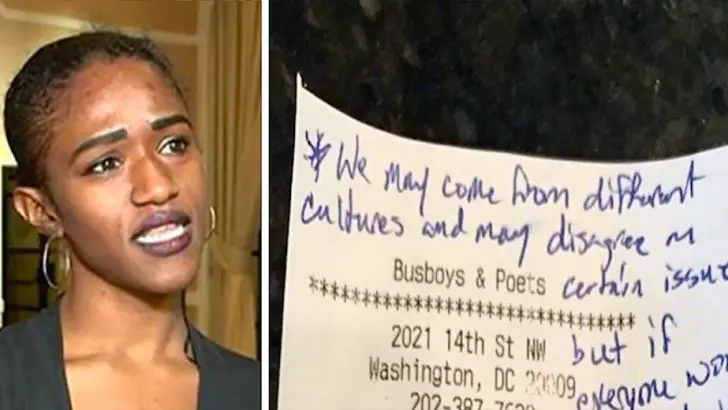 * We may come from different
cultures and may disagree on
Busboys & Poets certain issue
********************************
2021 14th St NW but if
Washington, DC 20009 everyone
202-387-